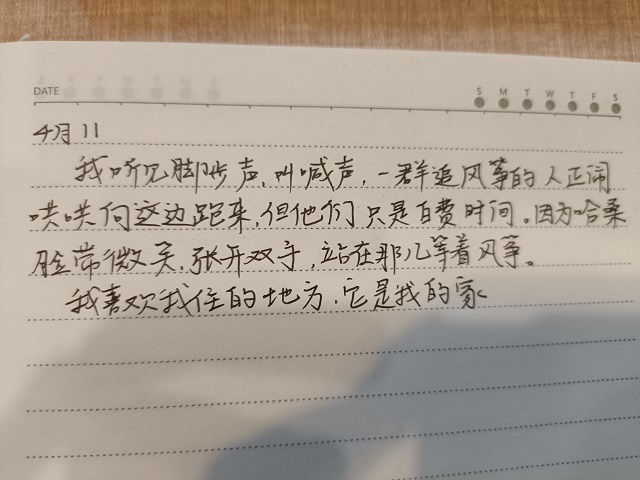 DATE
S M T W T F S
4月11
我听见脚步声,叫喊声,一群追风筝的人正闹
哄哄向这边跑来,但他们只是白费时间。因为哈桑
脸带微笑,张开双手,站在那儿等着风筝。
我喜欢我住的地方,它是我的家